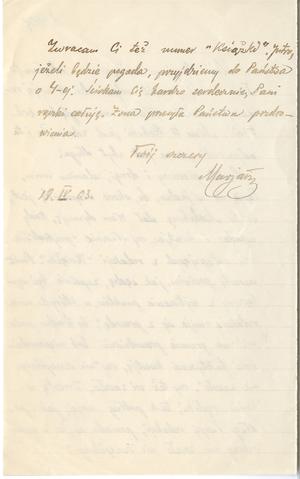 Zwracam Ci też numer "Książki". Jutro,
jeżeli będzie pogoda, przyjdziemy do Państwa
o 4-ej. Ściskam Cię bardzo serdecznie, Pani
rączki całuję. Żona przesyła Państwu pozdro-
wienia.
Twój szczery
Marjan
18. IV. 03.